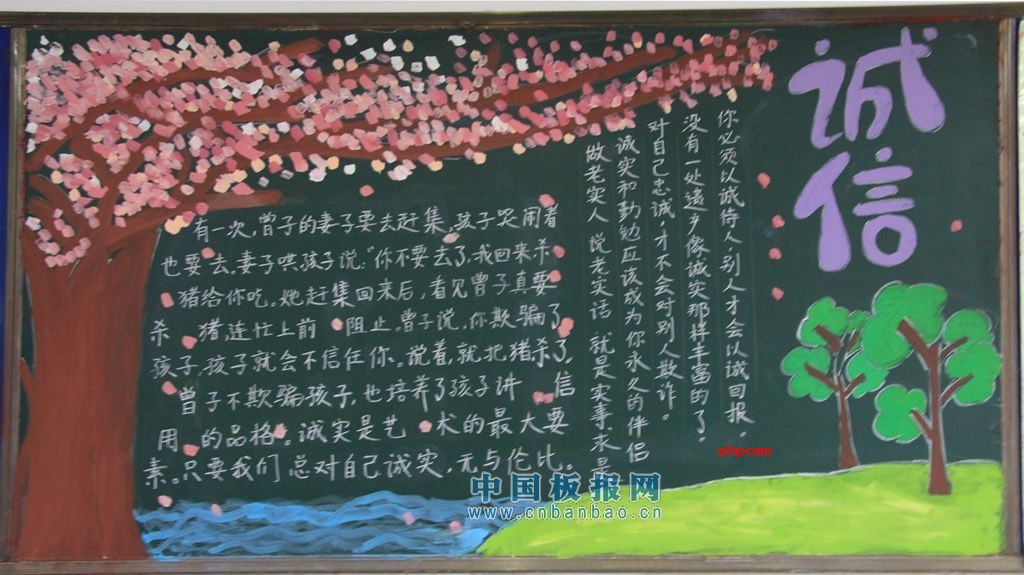 诚信
你必须以诚待人别人才会以诚回报。
没有一处遗产像诚实那样丰富的了。
对自己忠诚,才不会对别人欺诈。
诚实和勤勉应该成为你永久的伴侣
做老实人 说老实话 就是实事求是
有一次,曾子的妻子要去赶集,孩子哭闹着
也要去。妻子哄孩子说:“你不要去了,我回来杀
猪给你吃。她赶集回来后,看见曾子真要
杀 猪,连忙上前 阻止。曾子说,你欺骗了
孩子,孩子就会不信任你。说着,就把猪杀了。
曾子不欺骗孩子,也培养了孩子讲 信
用 的品格。诚实是艺 术的最大要
素。只要我们总对自己诚实,无与伦比。
phpcms
中国板报网
www.cnbanbao.cn